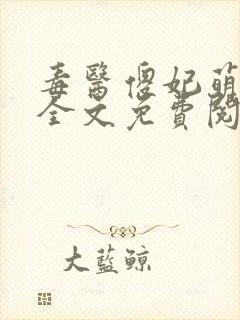 毒醫傻妃萌
全文免費閱
大藍鯨